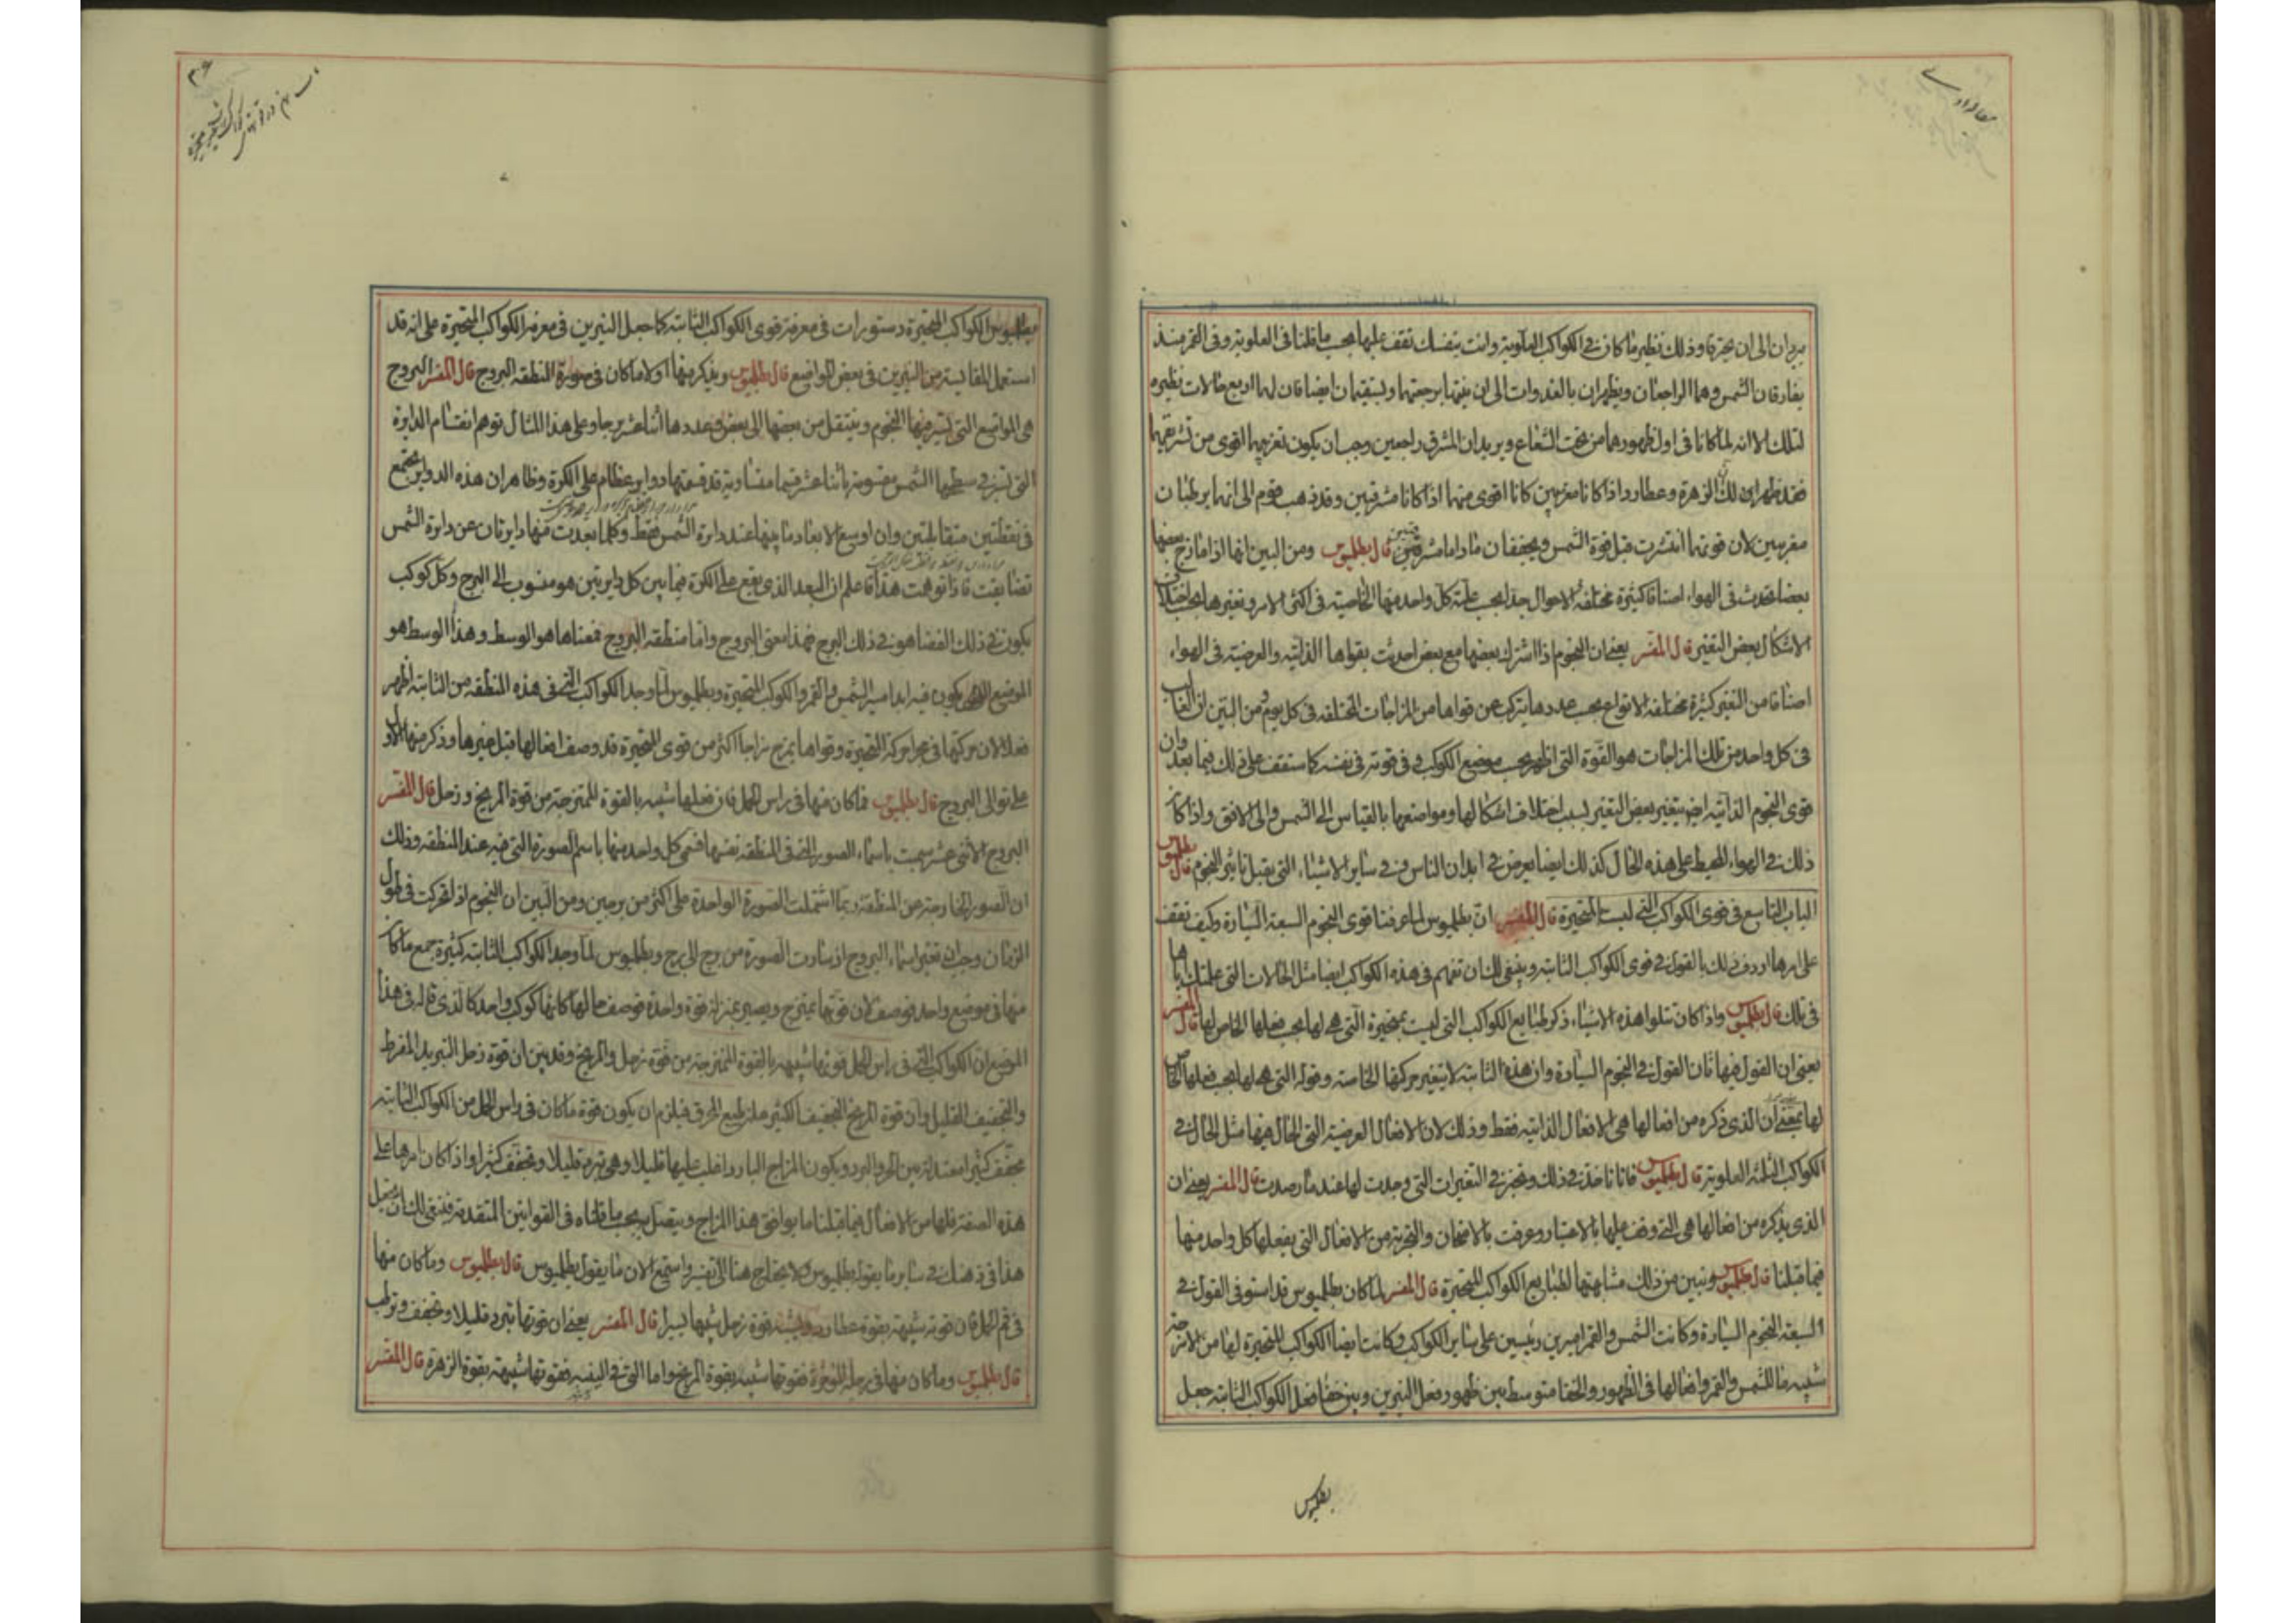 يريدان الى ان يحترقا وذلك نظير ما كان في الكواكب العلوية وانت بنفسك تقف عليها بحسب ما قلنا في العلوية وفي القمر منذ
يفارقان الشمس وهما الراجعان ويظهران بالغدوات الى ان ينتهيا برجعتهما ويستقيمان ايضا فان لهما اربع حالات نظيره
لتلك الا انه لما كانا في اول ظهورهما من تحت الشعاع ويريدان المشرق راجعين وجب ان يكون تغريبهما اقوى من تشريقهما
فقد ظهر ان الزهرة وعطارد اذا كانا مغربين كانا اقوى منهما اذا كانا مشرقين وقد ذهب قوم الى انهما يرطبان
مغربين لان قوتهما انتشرت قبل قوة الشمس ويجففان ما داما مشرقين قال بطلميوس ومن البين انها اذا مازج بعضها
بعضا تحدث في الهواء اصنافا كثيرة مختلفة الاحوال جدا بحسب غلبة كل واحد منها الخاصية في اكثر الامر وتغيرها بحسب اختلاف
الاشكال بعض التغير قال المفسر يعني ان النجوم اذا اشترك بعضها مع بعض احدثت بقواها الذاتية والعرضية في الهواء
اصنافا من التغير كثيرة مختلفة الانواع بحسب عددها يتركب عن قواها من المزاجات المختلفة في كل يوم ومن البين ان الغالب
في كل واحد من تلك المزاجات هو القوة التي اظهر بحسب موضع الكوكب و في قوته في نفسه كما ستقف على ذلك فيما بعد وان
قوى النجوم الذاتية ايضا يتغير بعض التغير بسبب اختلاف اشكالها ومواضعها بالقياس الى الشمس والى الافق واذا كان
ذلك في الهواء المحيط على هذه الحال كذلك ايضا يعرض في ابدان الناس وفي ساير الاشياء التي يقبل تاثير النجوم قال بطلميوس
الباب التاسع في قوى الكواكب التي ليست المتحيرة قال المفسر ان بطلميوس لما عرفنا قوى النجوم السبعة السيارة وكيف تقف
على امرها اردف ذلك بالقول في قوى الكواكب الثابتة وينبغي لك ان تفهم في هذه الكواكب ايضا مثل الحالات التي علمتك اياها
في تلك قال بطلميوس واذا كان تتلوا هذه الاشياء ذكر طبايع الكواكب التي ليست بمتحيرة التي هي لها بحسب فعلها الخاص لها قال المفسر
يعني ان القول فيها ثان القول في النجوم السيارة وان هذه الثابتة لا يتغير حركتها الخاصة وقوله التي هي لها بحسب فعلها الخاص
لها يعني ان الذي ذكره من افعالها هي الافعال الذاتية فقط وذلك لان الافعال العرضية التي الحال فيها مثل الحال في
الكواكب الثلثة العلوية قال بطلميوس فانا ناخذ في ذلك ونخبر في التغيرات التي وجدت لها عند ما رصدت قال المفسر يعني ان
الذي يذكره من افعالها هي التي وقف عليها بالاعتبار وعرفت بالامتحان والتجربة من الافعال التي يفعلها كل واحد منها
فيما قبلنا قال بطلميوس ونبين من ذلك مشابهتها لطبايع الكواكب المتحيرة قال المفسر لما كان بطلميوس قد استوفى القول في
السبعة النجوم السيارة وكانت الشمس والقمر اميرين رئيسين على ساير الكواكب وكانت ايضا الكواكب المتحيرة لها من الامزجة
شبيه ما للشمس والقمر وافعالها في الظهور والخفا متوسط بين ظهور فعل النيرين وبين خفا فعل الكواكب الثابتة جعل
بطلميوس
٣۶
بطلميوس الكواكب المتحيرة دستورات في معرفة قوى الكواكب الثابتة كما جعل النيرين في معرفة الكواكب المتحيرة على انه قد
استعمل المقايسة من النيرين في بعض المواضع قال بطلميوس ويذكر منها اولا ما كان في صورة المنطقة البروج قال المفسر البروج
هي المواضع التي تسير فيها النجوم وينتقل من بعضها الى بعض وعددها اثنا عشر برجا وعلى هذا المثال توهم انقسام الدايرة
التي تسير في سطحها الشمس مقسومة باثنا عشر قسما متساوية قد قسمتها دواير عظام على الكرة وظاهر ان هذه الدواير يجتمع
في نقطتين متقابلتين وان اوسع الابعاد ما بينها عند دايرة الشمس فقط وكلما بعدت منها دايرتان عن دايرة الشمس
تضايقت فاذا توهمت هذا فاعلم ان البعد الذي يقع على الكرة فيما بين كل دايرتين هو منسوب الى البرج وكل كوكب
يكون في ذلك الفضا هو في ذلك البرج فهذا معنى البروج واما منطقة البروج فمعناها هو الوسط وهذا الوسط هو
الموضع الذي يكون فيه ابدا مسير الشمس والقمر والكواكب المتحيرة وبطلميوس لما وجد الكواكب التي في هذه المنطقة من الثابتة اظهر
فعلا لان حركتها في مجرا حركة المتحيرة وقواها يمزج مزاجا اكثر من قوى المتحيرة قد وصف افعالها قبل غيرها وذكر منها الاول
على توالى البروج قال بطلميوس فما كان منها في راس الحمل فان فعلها شبيه بالقوة الممتزجة من قوة المريخ وزحل قال المفسر
البروج الاثنى عشر سميت باسماء الصور التي في المنطقة نفسها فسمى كل واحد منها باسم الصورة التي فيه عند المنطقة وذلك
ان الصور الخارجة عن المنطقة ربما اشتملت الصورة الواحدة على اكثر من برجين ومن البين ان النجوم اذا تحركت في طول
الزمان وجب ان تغير اسماء البروج اذ سارت الصورة من برج الى برج وبطلميوس لما وجد الكواكب الثابتة كثيرة جمع ما كان
منها في موضع واحد فوصف لان قوتها يمتزج ويصير بمنزلة قوة واحدة فوصف حالها كانها كوكب واحد كالذي قاله في هذا
الموضع ان الكواكب التي في راس الحمل قوتها شبيهة بالقوة الممتزجة من قوة زحل والمريخ وقد بين ان قوة زحل التبريد المفرط
والتجفيف القليل وان قوة المريخ التجفيف الكثير فيلزم ان يكون قوة ما كان في راس الحمل من الكواكب الثابتة
مجفف كثيرا معتدلة بين الحر والبرد ويكون المزاج البارد اغلب عليها قليلا وهي تبرد قليلا وتجفف كثيرا واذا كان امرها على
هذه الصفة فلها من الافعال فيما قبلنا ما يوافق هذا المزاج ويتصل بحسب ما قلناه في القوانين المتقدمة فينبغي لك ان تجعل
هذا في ذهنك في ساير ما يقوله بطلميوس ولا يحتاج هنا الى تفسير واستمع الان ما يقول بطلميوس قال بطلميوس وما كان منها
في فم الحمل فان قوته شبيهة بقوة عطارد قوة زحل شبها يسيرا قال المفسر يعني ان قوتها تبرد قليلا وتجفف وترطب
قال بطلميوس وما كان منها في رجله المؤخرة فقوتها شبيهة بقوة المريخ واما التي في اليته فقوتها شبيهة بقوة الزهرة قال المفسر